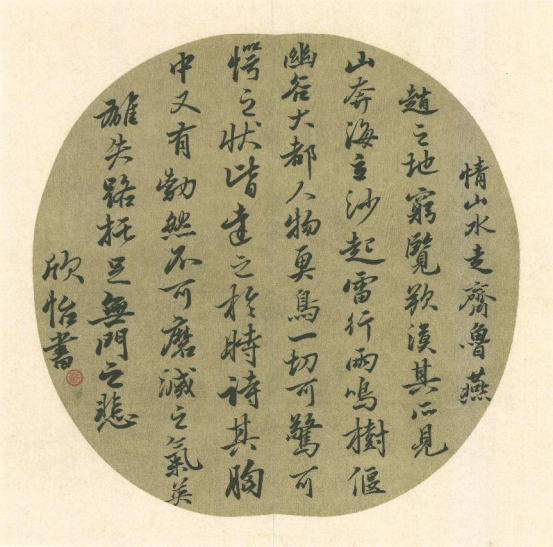 情山水走齊魯燕
趙之地窮覽漠其所見
山奔海立沙起雷行雨鳴樹偃
幽谷大都人物魚鳥一切可驚可
愕之狀皆達之於時詩其胸
中又有勃然不可磨滅之氣英
雄失路托足無門之悲
欣怡書